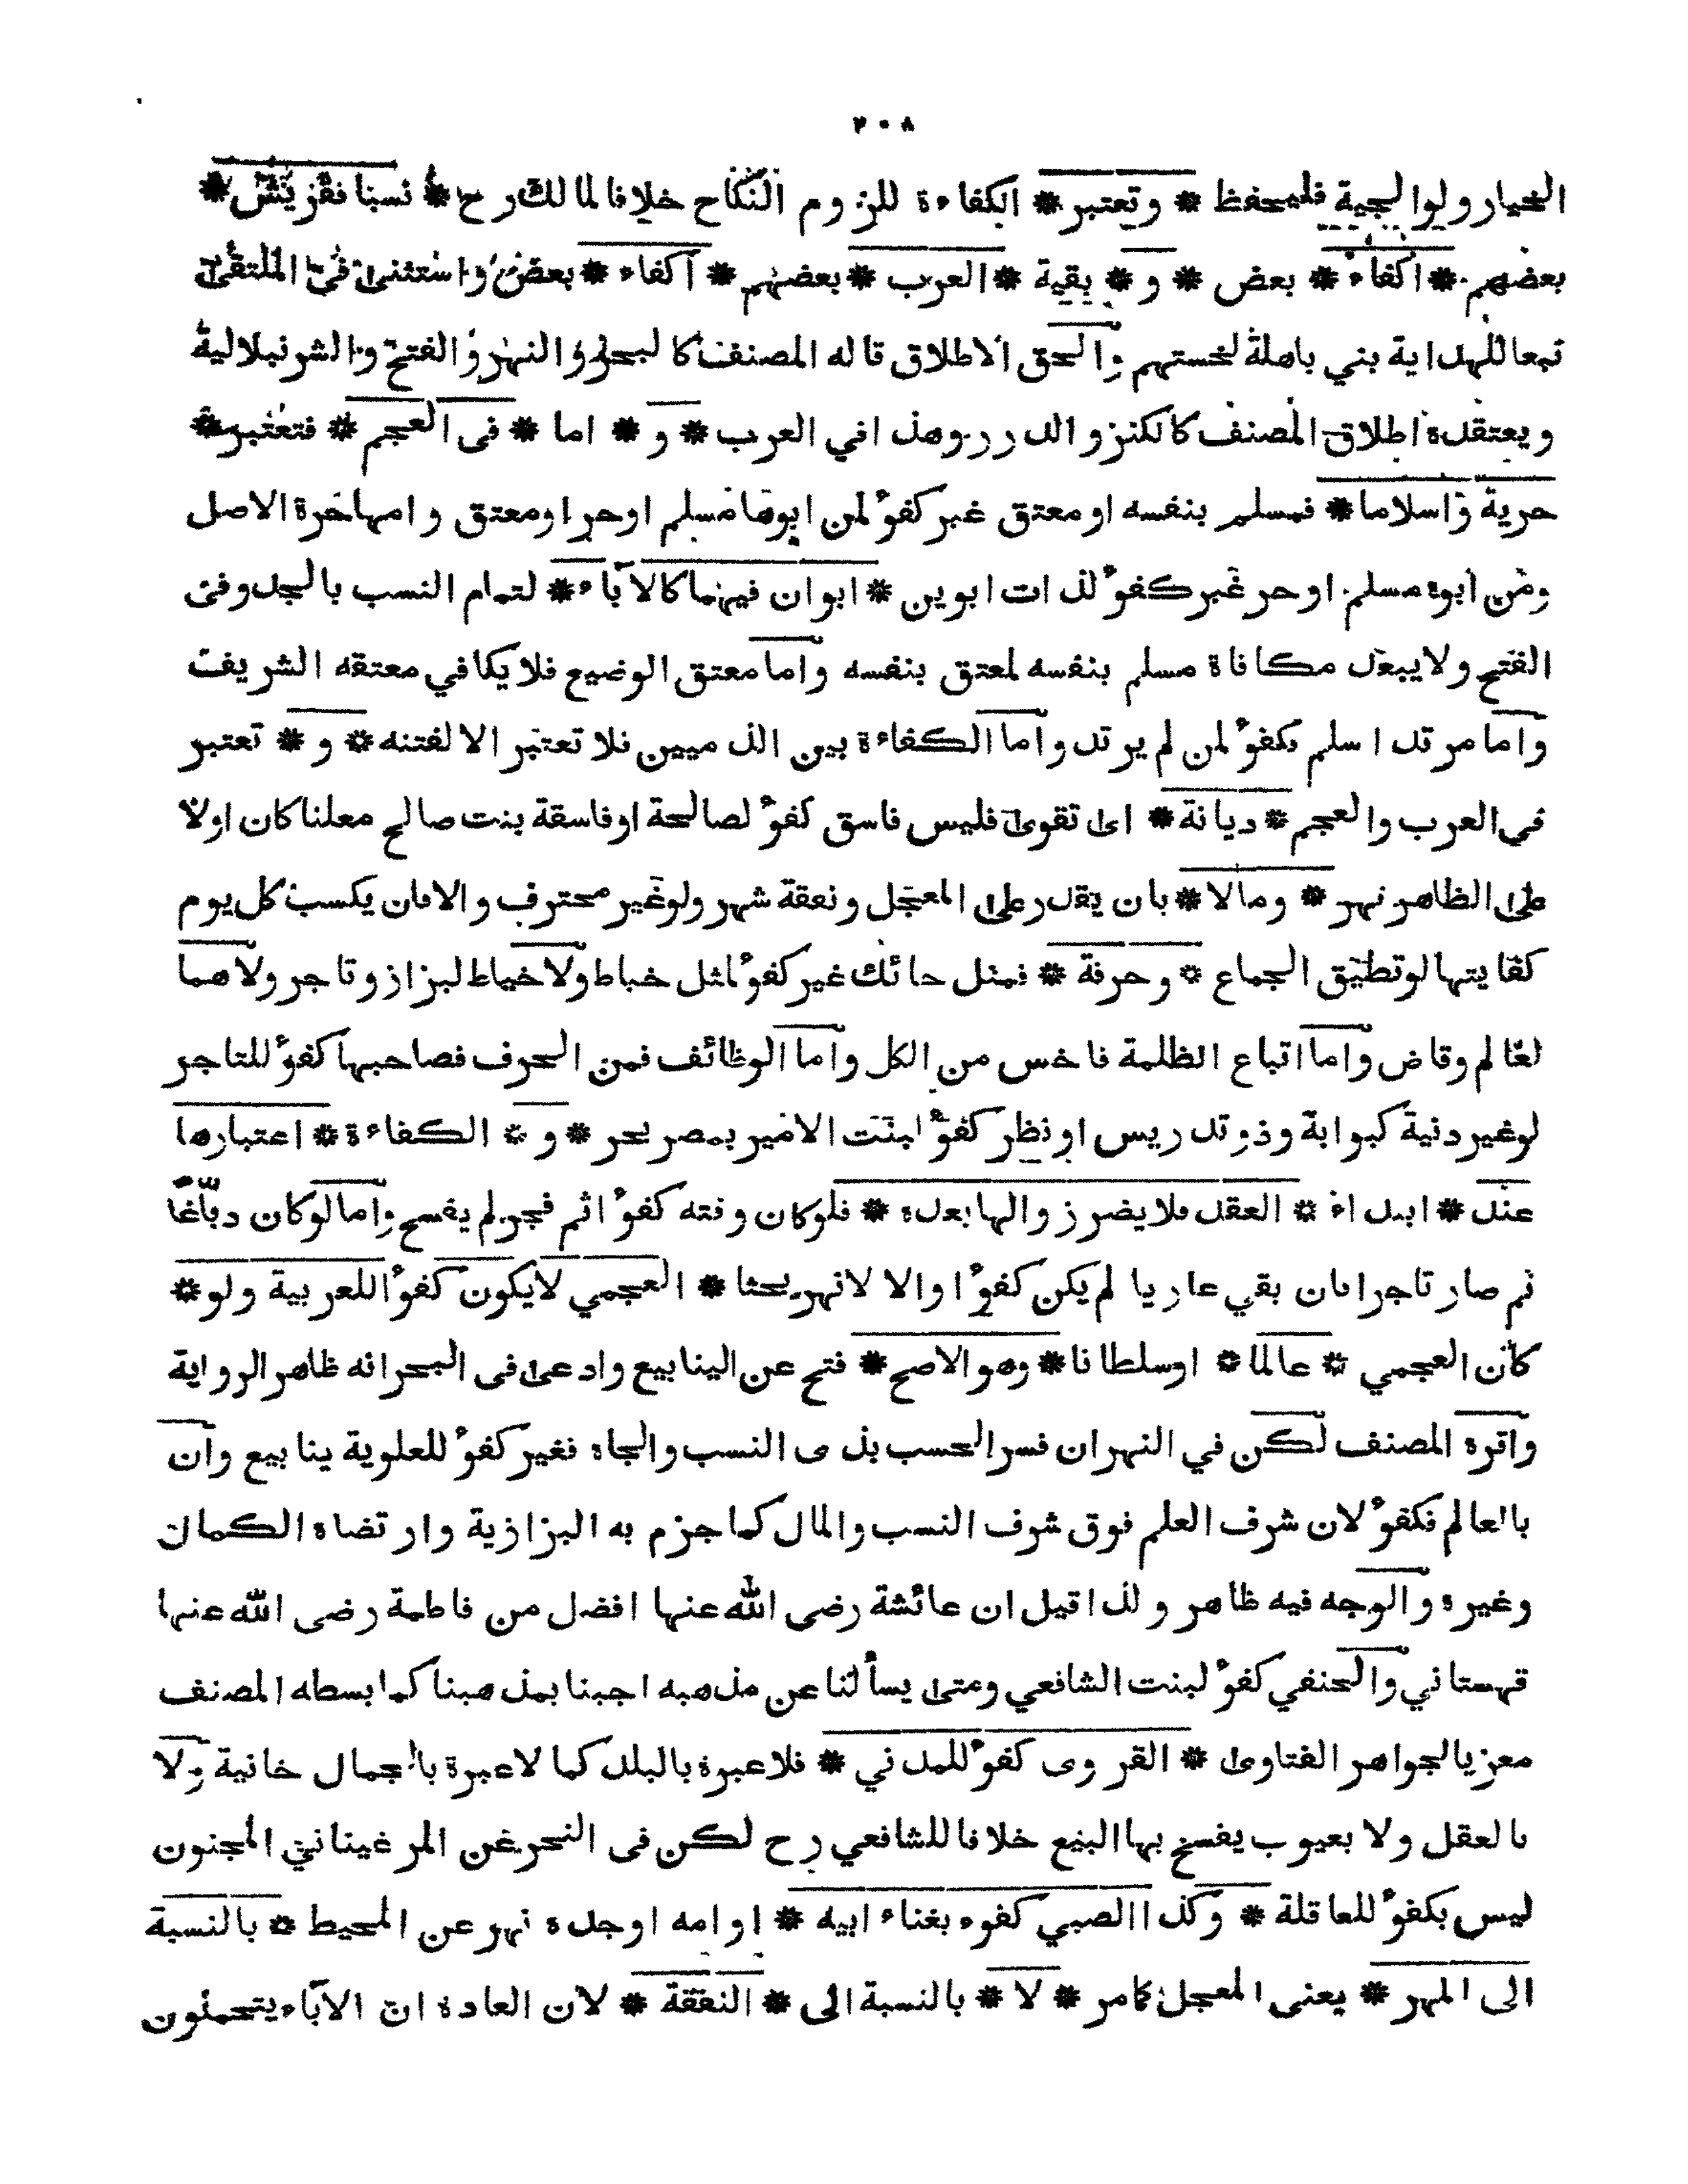 ٢٠٨
الخيار ولوالجية فليحفظ * وتعتبر * الكفاءة للزوم النكاح خلافا لمالك رح * نسبا فقريش *
بعضهم * اكفاء * بعض * و * بقية * العرب * بعضهم * اكفاء * بعض واستثنى فى الملتقى
تبعا للهداية بني باهلة لخستهم والحق الاطلاق قاله المصنف كالبحر والنهر والفتح والشرنبلالية
ويعتقده اطلاق المصنف كالكنز والدرر وهذا في العرب * و * اما * فى العجم * فتعتبر *
حرية واسلاما * فمسلم بنفسه او معتق غير كفوٴ لمن ابوها مسلم او حر او معتق وامها حرة الاصل
ومن ابوه مسلم او حر غير كفوٴ لذات ابوين * ابوان فيهما كالآباء * لتمام النسب بالجد وفى
الفتح ولا يبعد مكافاة مسلم بنفسه لمعتق بنفسه واما معتق الوضيع فلا يكافي معتقه الشريف
واما مرتد اسلم فكفوٴ لمن لم يرتد واما الكفاءة بين الذميين فلا تعتبر الا لفتنه * و * تعتبر
فى العرب والعجم * ديانة * اى تقوى فليس فاسق كفوٴ لصالحة او فاسقة بنت صالح معلنا كان اولا
على الظاهر نهر * ومالا * بان يقدر على المعجل ونفقة شهر ولو غير محترف والا فان يكسب كل يوم
كفايتها لو تطيق الجماع * وحرفة * فمثل حائك غير كفوٴ لمثل خياط ولا خياط لبزاز وتاجر ولا هما
لعالم وقاض واما اتباع الظلمة فاخس من الكل واما الوظائف فمن الحرف فصاحبها كفوٴ للتاجر
لو غير دنية كبوابة وذو تدريس او نظر كفوٴ لبنت الامير بمصر بحر * و * الكفاءة * اعتبارها
عند * ابتداء * العقد فلا يضر زوالها بعده * فلو كان وقته كفوٴا ثم فجر لم يفسخ واما لو كان دباغا
ثم صار تاجرا فان بقي عارها لم يكن كفوٴا والا لا نهر بحثا * العجمي لا يكون كفوٴا للعربية ولو *
كان العجمي * عالما * او سلطانا * وهو الاصح * فتح عن الينابيع وادعى فى البحر انه ظاهر الرواية
واقره المصنف لكن في النهر ان فسر الحسب بذى النسب والجاه فغير كفوٴ للعلوية ينابيع وان
بالعالم فكفوٴ لان شرف العلم فوق شرف النسب والمال كما جزم به البزازية وارتضاه الكمال
وغيره والوجه فيه ظاهر ولذا قيل ان عائشة رضى الله عنها افضل من فاطمة رضى الله عنها
قهستاني والحنفي كفوٴ لبنت الشافعي ومتى يسألنا عن مذهبه اجبنا بمذهبنا كما بسطه المصنف
معزيا لجواهر الفتاوى * القروى كفوٴ للمدني * فلا عبرة بالبلد كما لا عبرة بالجمال خانية ولا
بالعقل ولا بعيوب يفسخ بها البيع خلافا للشافعي رح لكن فى النهر عن المرغيناني المجنون
ليس بكفوٴ للعاقلة * وكذا الصبي كفوء بغناء ابيه * او امه او جده نهر عن المحيط * بالنسبة
الى المهر * يعنى المعجل كامر * لا * بالنسبة الى * النفقة * لان العادة ان الآباء يتحملون